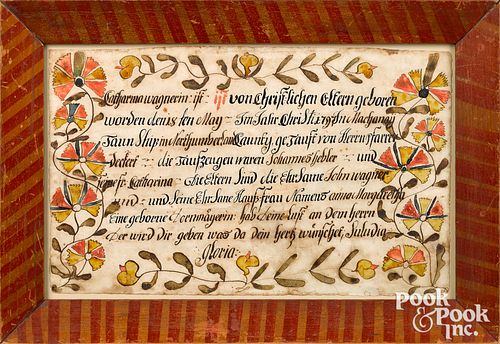 Catharina wagnerin: ist: ist von Christlichen Eltern geboren
worden den 15 ten May Im Jahr Christi 1791 in Machanoy
Taunship in Northumberland Caunty, getauft von Herrn Pfarrer
die Taufzeugen waren Johannes und
Catharina die Eltern Sind die Ehrsame John wagner
und und Seine Ehrsame Hausfrau Namens anna Margaretha
Eine geborne hab Deine lust an dem Herrn
Der wird dir geben was da dein hertz wünschet,
Gloria
POOK
& POOK
INC.